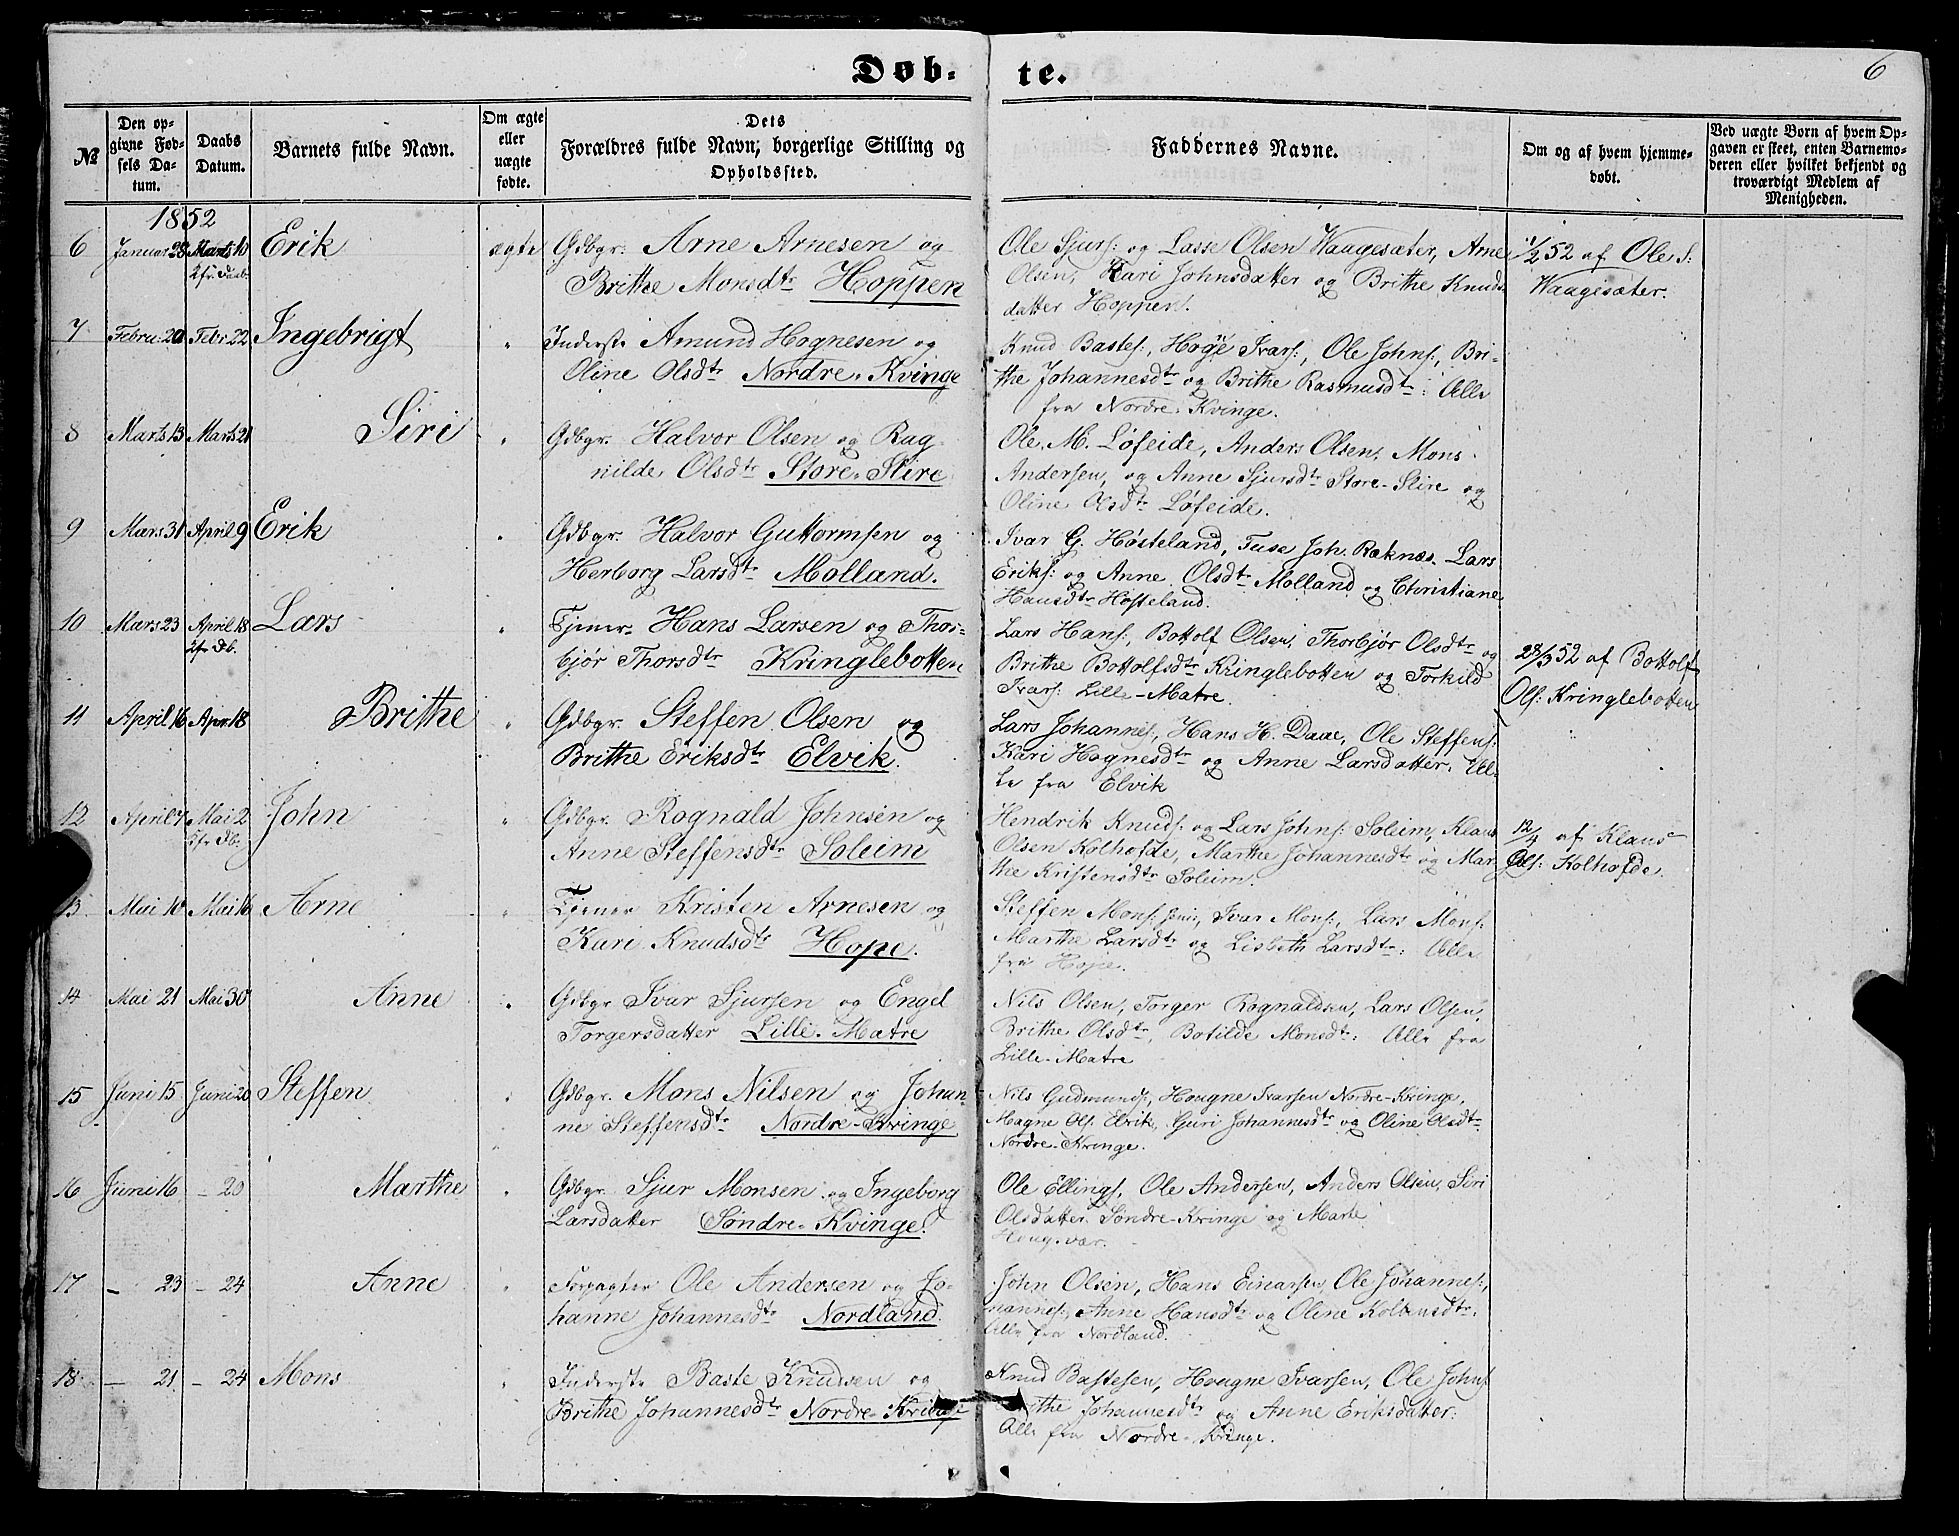 Døb-
te.
6
№
Den op-
givne Fød-
sels Da-
tum.
Daabs
Datum.
Barnets fulde Navn.
Om ægte
eller
uægte
fødte.
Dets
Forældres fulde Navn, borgerlige Stilling og
Opholdssted.
Faddernes Navne.
Om og af hvem hjemme-
døbt.
Ved uægte Børn af hvem Op-
gaven er skeet, enten Barnemo-
deren eller hvilket bekjendt og
troværdigt Medlem af
Menigheden.
1852
6 Januar 28 Marts 10 Erik ægte Gdbgr. Arne Arnesen og
2 fr. Daab
Brithe Monsdtr Hoppen
Ole Sjurs: og Lasse Olsen Waagesæter, Arne
Olsen, Kari Johnsdatter og Brithe Knuds
datter Hoppen.
1/2 52 af Ole S:
Waagesæter.
7 Febru: 20 Febr 22 Ingebrigt " Inderste Amund Hognesen og
Oline Olsdtr Nordre-Kvinge
Knud Bastes:, Ivars:, Ole Johns:, Bri-
the Johannesdtr og Brithe Rasmusdtr: Alle
fra Nordre-Kvinge.
8 Marts 13 Marts 21 Siri " Gdbgr. Halvor Olsen og Rag-
nilde Olsdtr Store-Slire
Ole M. Løfeide, Anders Olsen, Mons
Andersen, og Anne Sjursdtr Store-Slire og
Oline Olsdtr Løfeide.
9 Mars 31 April 9 Erik " Gdbgr. Halvor Guttormsen og
Herborg Larsdtr Molland.
Ivar G. Høsteland, Joh. Ræknæs, Lars
Eriks: og Anne Olsdtr Molland og Christiane
Hansdtr Høsteland.
10 Mars 23 April 18 Lars " Tjener Hans Larsen og Thor-
2 fr Db.
bjør Thorsdtr Kringlebotten
Lars Hans:, Bottolf Olsen, Thorbjør Olsdtr og
Brithe Bottolfsdtr Kringlebotten og Torkild
Ivars: Lille-Matre.
28/3 52 af Bottolf
Ols: Kringlebotten
11 April 16 Apr. 18 Brithe " Gdbgr. Steffen Olsen og
Brithe Eriksdtr Elvik.
Lars Johannes:, Hans H. Daae, Ole Steffens:
Kari Hognesdtr og Anne Larsdatter. Al-
le fra Elvik
12 April 7 Mai 2 John " Gdbgr. Rognald Johnsen og
5 fr Db.
Anne Steffensdtr Soleim
Hendrik Knuds: og Lars Johns: Soleim, Klaus
Olsen Kolhofde, Marthe Johannesdtr og Mar
the Kristensdtr Soleim.
12/4 af Klaus
Ols: Kolhofde.
13 Mai 10 Mai 16 Arne " Tjener Kristen Arnesen og
Kari Knudsdtr Hope.
Steffen Mons: sen:, Ivar Mons:, Lars Mons:
Marthe Larsdtr og Lisbeth Larsdtr: Alle
fra Hope.
14 Mai 21 Mai 30 Anne " Gdbgr Ivar Sjursen og Engel
Torgersdatter Lille-Matre
Nils Olsen, Torger Rognaldsen, Lars Olsen,
Brithe Olsdtr, Botilde Monsdtr: Alle fra
Lille-Matre
15 Juni 15 Juni 20 Steffen " Gdbgr. Mons Nilsen og Johan-
ne Steffensdtr Nordre-Kvinge
Nils Gudmunds:, Hougne Ivarsen Nordre-Kvinge,
Magne Ols. Elvik, Guri Johannesdtr og Oline Olsdtr
Nordre-Kvinge.
16 Juni 16 - 20 Marthe " Gdbgr Sjur Monsen og Ingeborg
Larsdatter Søndre-Kvinge.
Ole Ellings:, Ole Andersen, Anders Olsen, Siri
Olsdatter Søndre-Kvinge og Marte
17 - 23 - 24 Anne " Forpagter Ole Andersen og Jo-
hanne Johannesdtr Nordland.
John Olsen, Hans Einarsen, Ole Johannes:,
Anne Hansdtr og Oline Kolbensdtr:
Alle fra Nordland.
18 - 21 - 24 Mons " Inderste Baste Knudsen og
Brithe Johannesdtr Nordre-Kvinge
Knud Bastesen, Hougne Ivarsen, Ole Johns:
Brithe Johannesdtr og Anne Eriksdatter:
Alle fra Nordre-Kvinge.